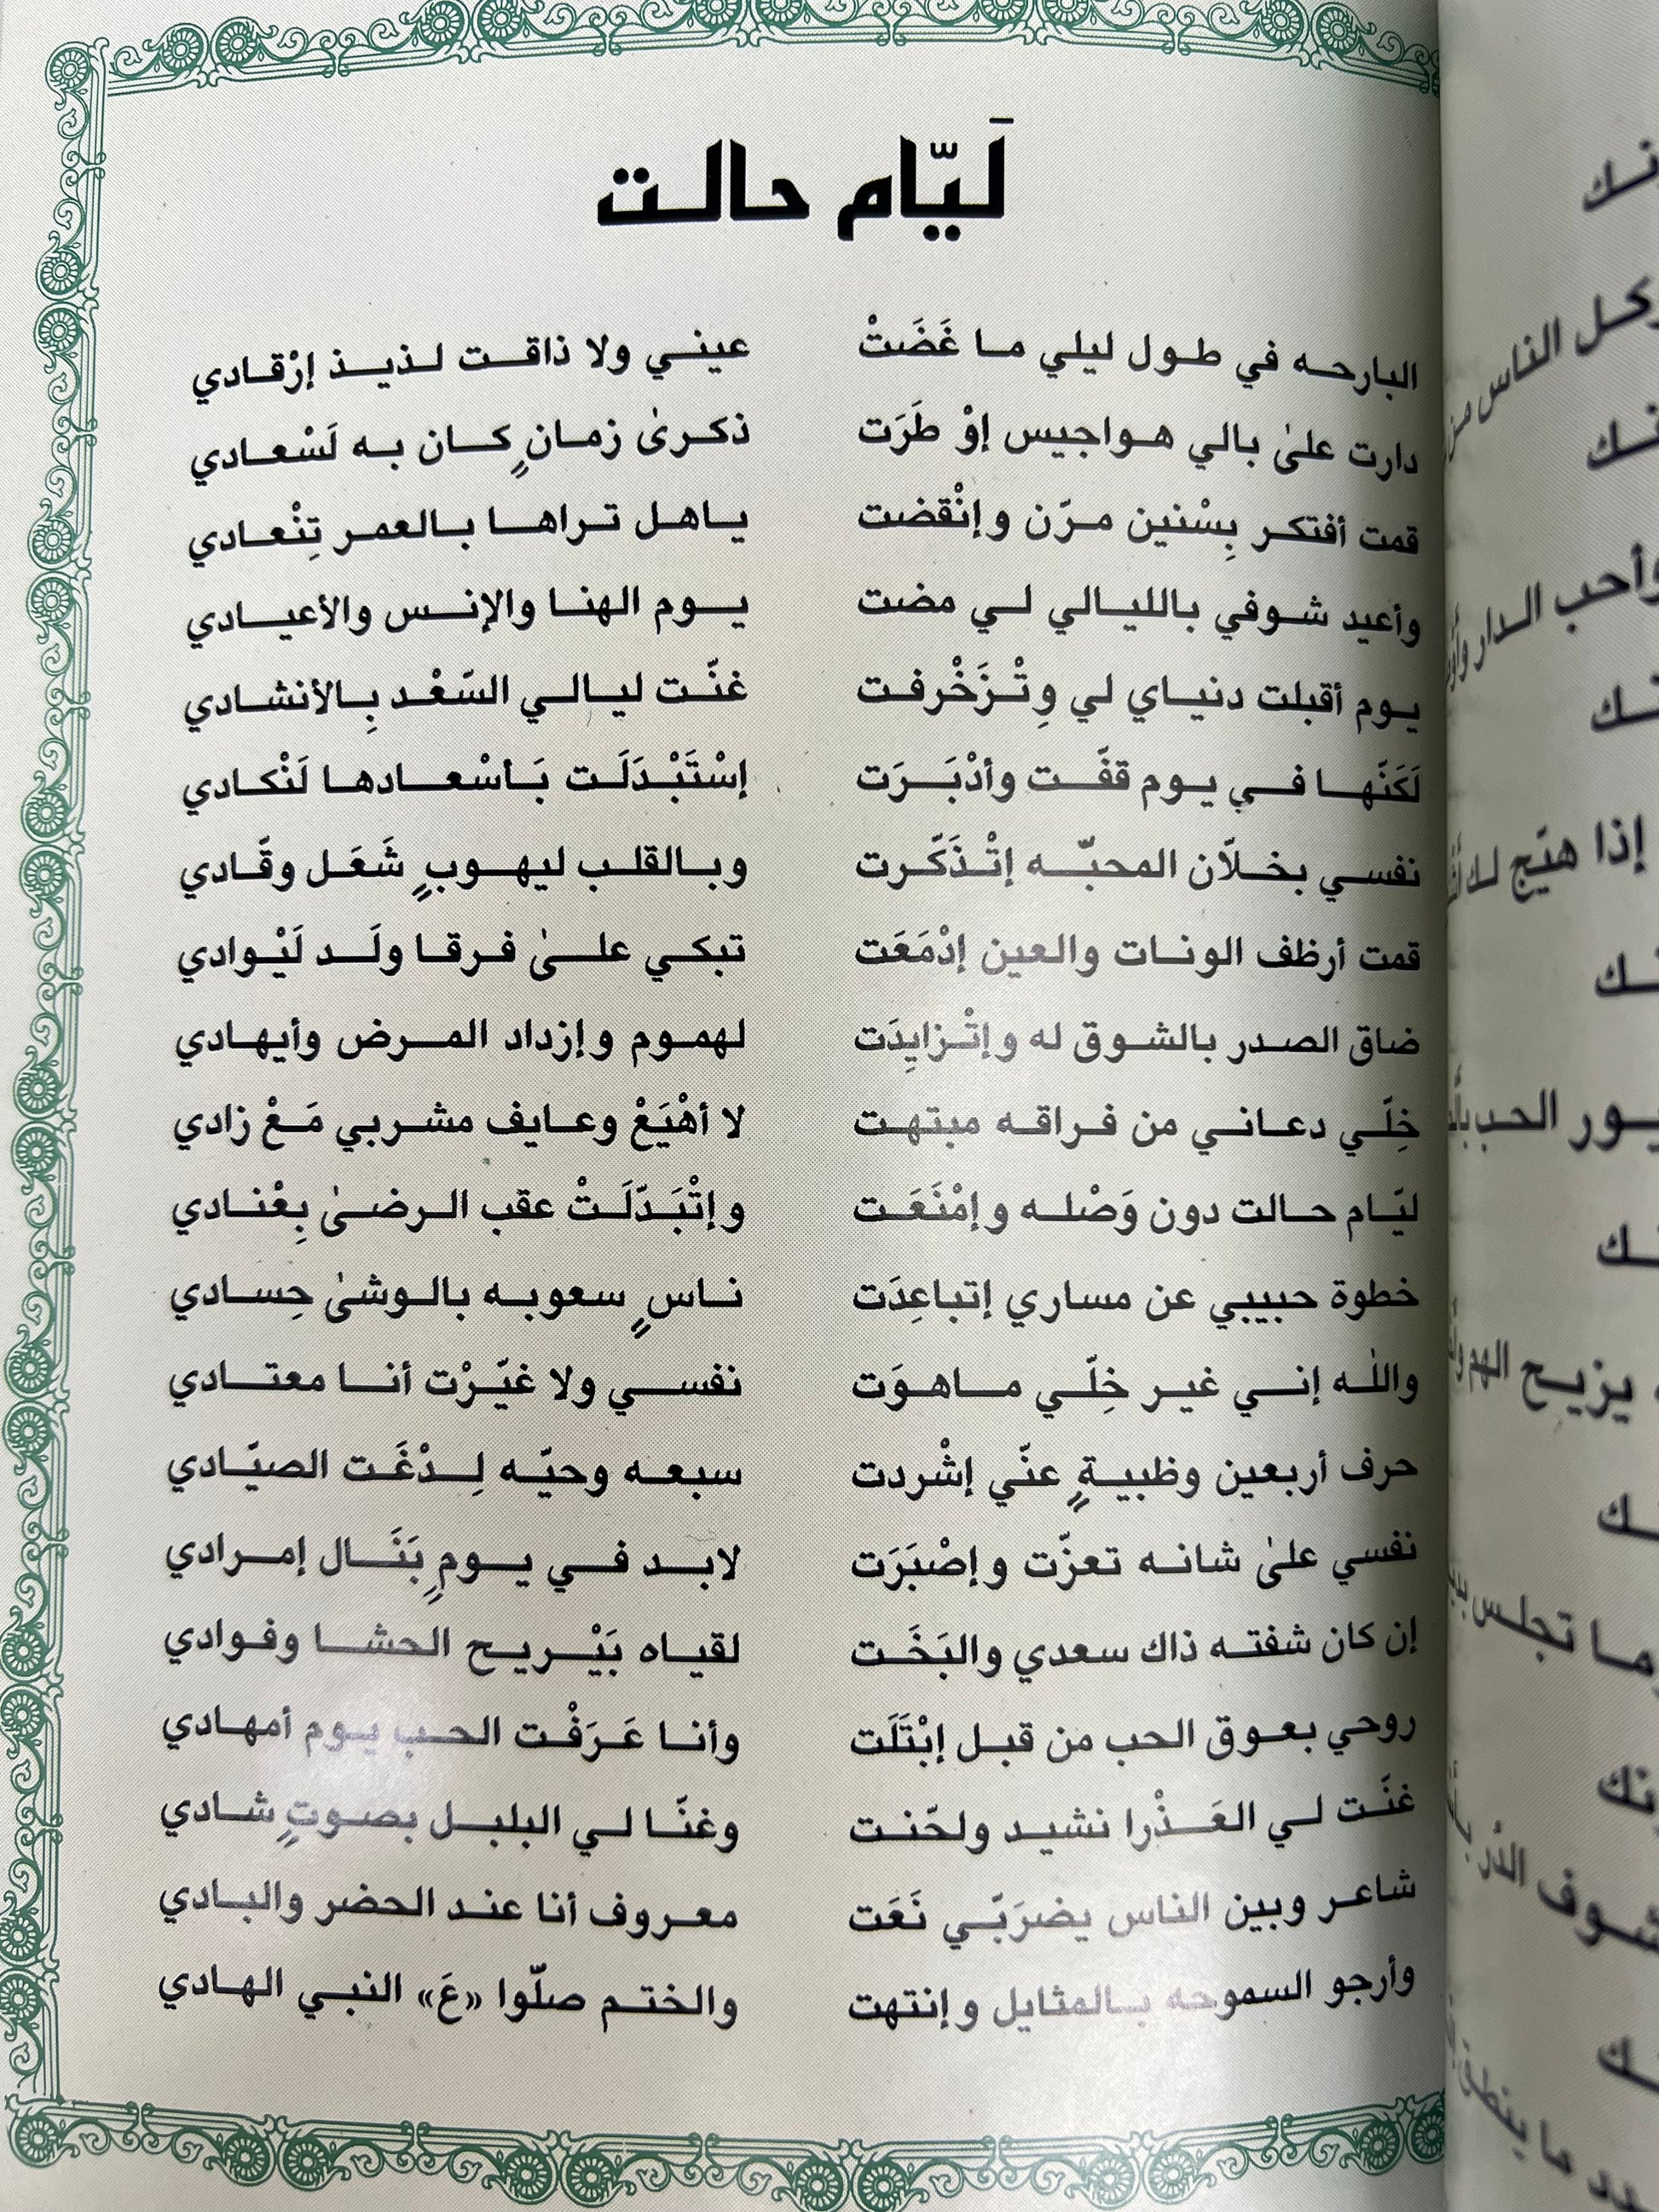 لَيّام حالت
البارحه في طول ليلي ما غَضَتْ عيني ولا ذاقت لذيذ إرْقادي
دارت علىٰ بالي هواجيس إوْ طَرَت ذكرىٰ زمانٍ كان به لَسْعادي
قمت أفتكر بِسْنين مرّن وإنْقضت ياهل تراها بالعمر تِنْعادي
وأعيد شوفي بالليالي لي مضت يوم الهنا والإنس والأعيادي
يوم أقبلت دنياي لي وِتْزَخْرفت غنّت ليالي السّعْد بِالأنشادي
لَكَنّها في يوم قفّت وأدْبَرَت إسْتَبْدَلَت بَأسْعادها لَنْكادي
نفسي بخلاّن المحبّه إتْذَكّرت وبالقلب ليهوبٍ شَعَل وقَادي
قمت أرظف الونات والعين إدْمَعَت تبكي علىٰ فرقا ولَد لَيْوادي
ضاق الصدر بالشوق له وإتْزايِدَت لهموم وإزداد المرض وأيهادي
خِلّي دعاني من فراقه مبتهت لا أهْيَعْ وعايف مشربي مَعْ زادي
ليّام حالت دون وَصْله وإمْنَعَت وإتْبَدّلَتْ عقب الرضىٰ بِعْنادي
خطوة حبيبي عن مساري إتباعِدَت ناسٍ سعوبه بالوشىٰ حِسادي
والله إني غير خِلّي ماهوَت نفسي ولا غيّرْت أنا معتادي
حرف أربعين وظبيةٍ عنّي إشْردت سبعه وحيّه لِدْغَت الصيّادي
نفسي علىٰ شانه تعزّت وإصْبَرَت لابد في يومٍ بَنَال إمرادي
إن كان شفته ذاك سعدي والبَخَت لقياه بَيْريح الحشا وفوادي
روحي بعوق الحب من قبل إبْتَلَت وأنا عَرَفْت الحب يوم أمهادي
غنّت لي العَذْرا نشيد ولحّنت وغنّا لي البلبل بصوتٍ شادي
شاعر وبين الناس يضرَبّي نَعَت معروف أنا عند الحضر والبادي
وأرجو السموحه بالمثايل وإنتهت والختم صلّوا «عَ» النبي الهادي